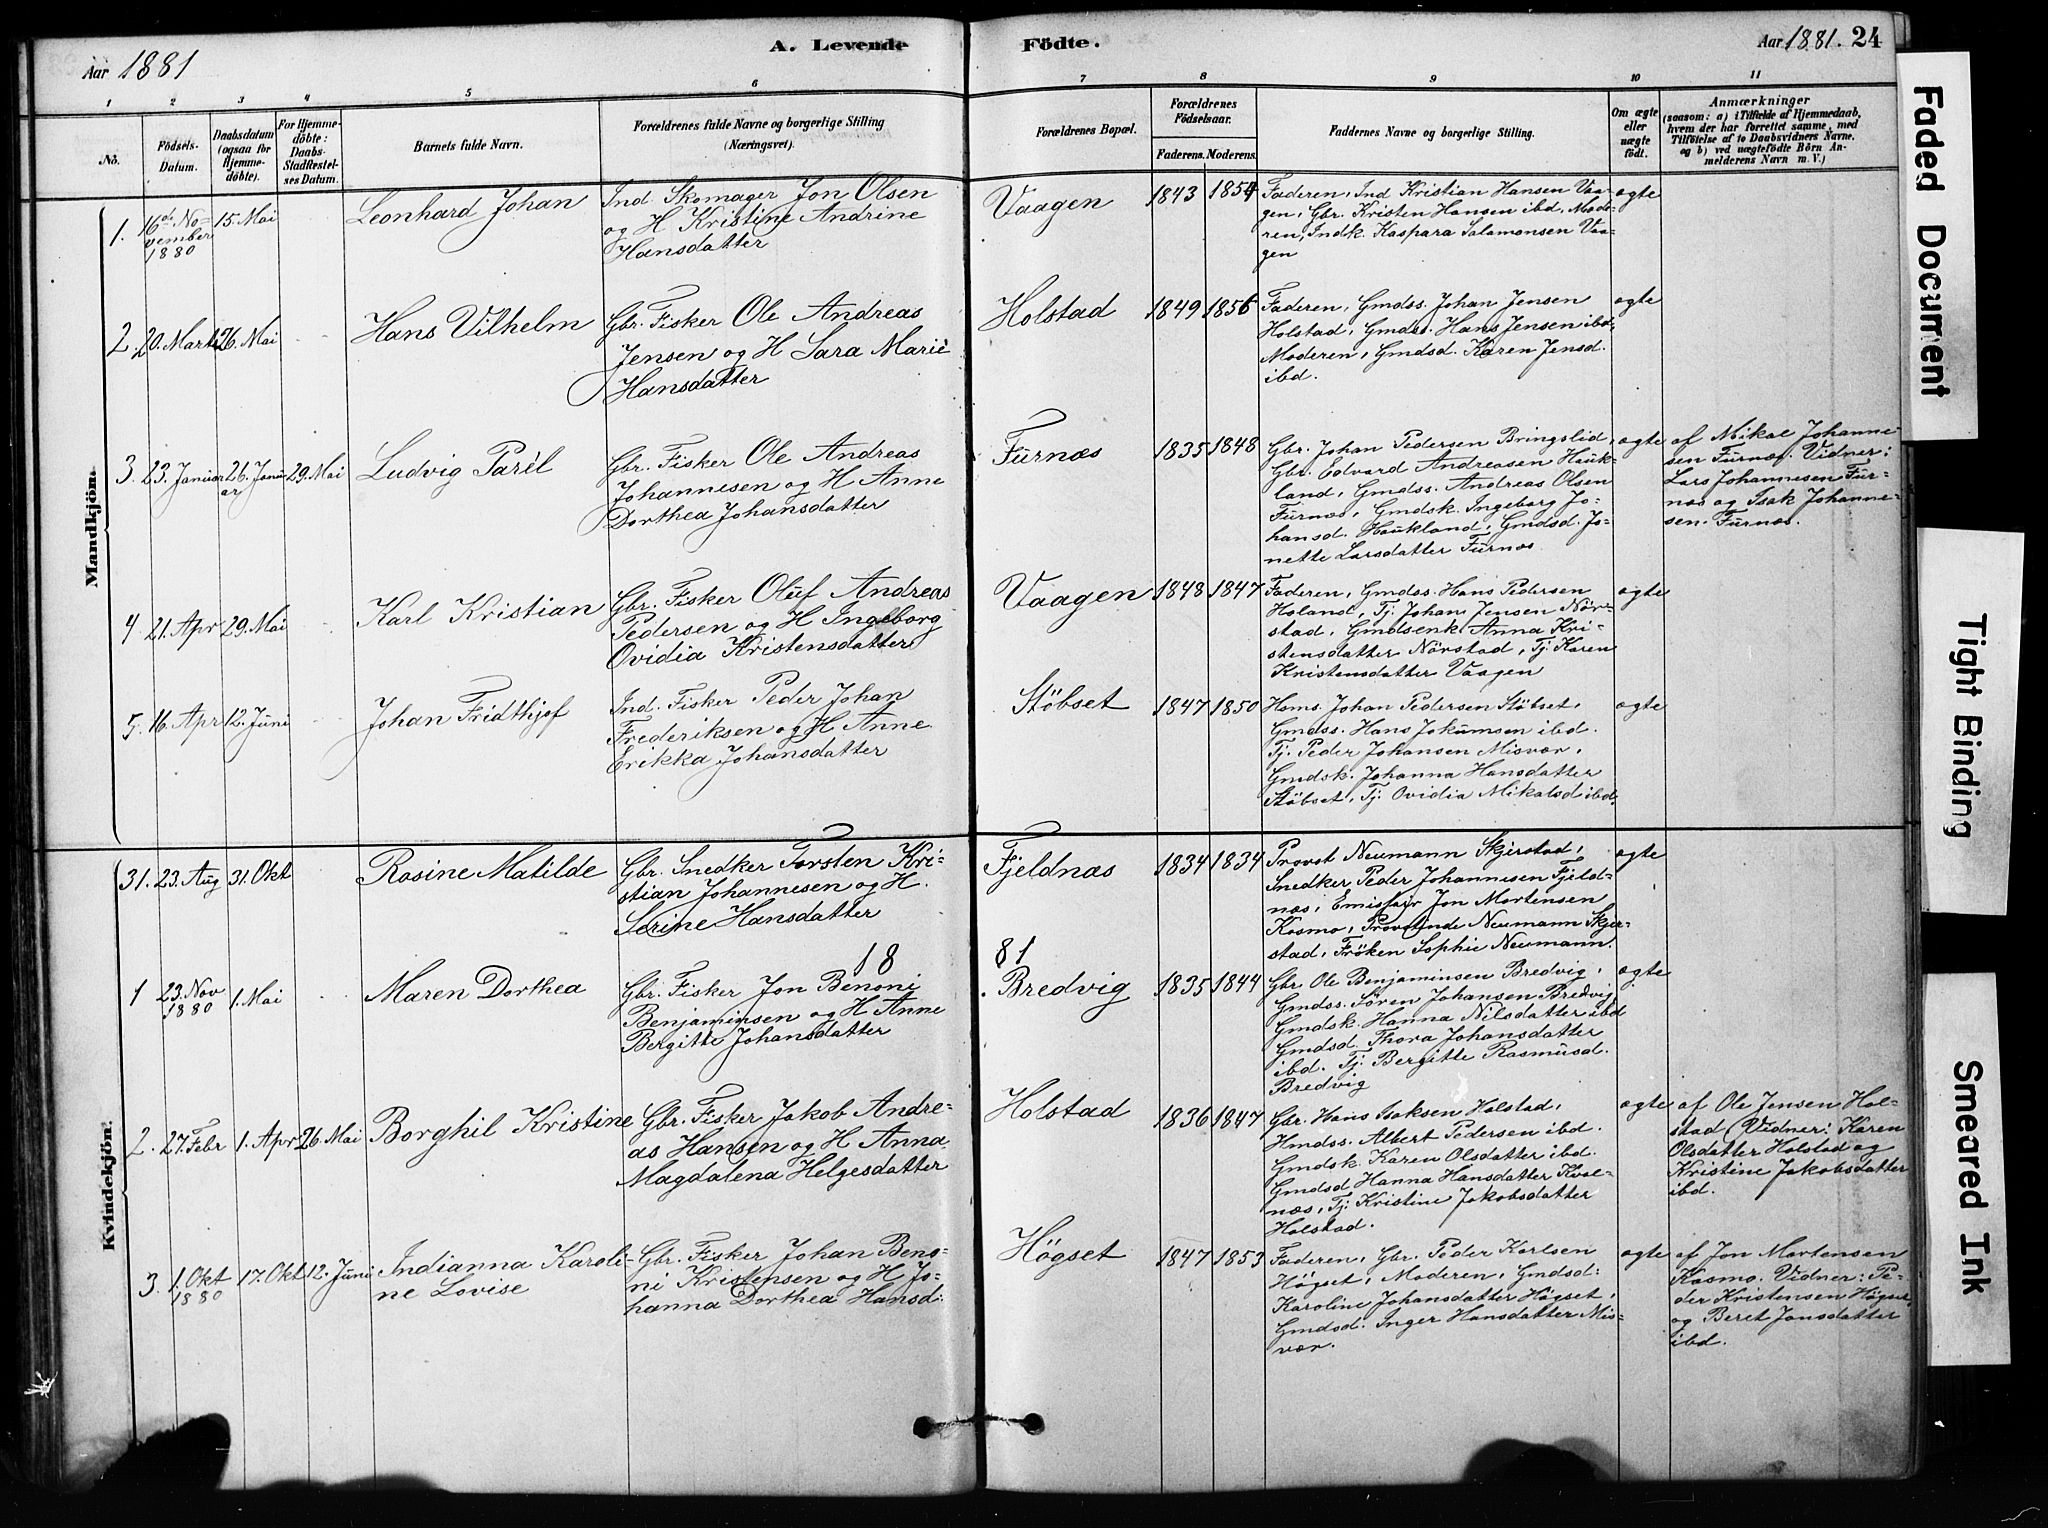 Aar 1881
A. Levende
Födte.
Aar 1881. 24
1 2 3 4 5 6 7 8 9 10 11
No.
Födsels-
Datum.
Daabsdatum
(ogsaa for
Hjemme-
döbte).
For Hjemme-
döbte:
Daabs-
Stadfæstel-
ses Datum.
Barnets fulde Navn.
Forældrenes fulde Navne og borgerlige Stilling
(Næringsvei).
Forældrenes Bopæl.
Forældrenes
Födselsaar.
Faderens. Moderens.
Faddernes Navne og borgerlige Stilling.
Om ægte
eller
uægte
födt.
Anmærkninger
(saasom: a) i Tilfælde af Hjemmedaab,
hvem der har forrettet samme, med
Tilföielse af to Daabsvidners Navne.
og b) ved uægtefödte Börn An-
melderens Navn m. V.)
Mandkjön:
1. 16de No-
vember
1880
15. Mai
Leonhard Johan
Ind Skomager Jon Olsen
og H Kristine Andrine
Hansdatter
Vaagen
1843 1854
Faderen, Ind Kristian Hansen Vaa-
gen, Gbr. Kristen Hansen ibd, Mode-
ren, Indk. Kaspara Salamonsen Vaa-
gen
ægte
2. 20. Marts 26. Mai
Hans Vilhelm
Gbr. Fisker Ole Andreas
Jensen og H Sara Marie
Hansdatter
Holstad
1849 1856
Faderen, Gmdss. Johan Jensen
Holstad, Gmdss. Hans Jensen ibd,
Moderen, Gmdsd. Karen Jensd.
ibd.
ægte
3. 23. Januar 26. Janu-
ar
29. Mai
Ludvig Parèl
Gbr. Fisker Ole Andreas
Johannesen og H Anne
Dorthea Johansdatter
Furnæs
1835 1848
Gbr. Johan Pedersen Bringslid,
Gbr. Edvard Andreasen Hauk-
land, Gmdss. Andreas Olsen
Furnæs, Gmdsk. Ingeborg Jo-
hansd. Haukland, Gmdsd. Jo-
nette Larsdatter Furnæs
ægte
af Mikal Johanne-
sen Furnæs. Vidner:
Lars Johannesen Fur-
næs og Isak Johanne-
sen. Furnæs.
4 21. Apr 29. Mai
Karl Kristian
Gbr. Fisker Oluf Andreas
Pedersen og H Ingeborg
Ovidia Kristensdatter
Vaagen
1848 1847
Faderen, Gmdss. Hans Pedersen
Holand, Tj. Johan Jensen Nör-
stad, Gmdsenk. Anna Kri-
stensdatter Nörstad, Tj. Karen
Kristensdatter Vaagen
ægte
5. 16. Apr 12. Juni
Johan Fridthjof
Ind. Fisker Peder Johan
Frederiksen og H Anne
Erikka Johansdatter
Stöbset
1847 1850
Homs. Johan Pedersen Stöbset,
Gmdss. Hans Jokumsen ibd.
Tj. Peder Johansen Misvær,
Gmdsk. Johanna Hansdatter
Stöbset, Tj. Ovidia Mikalsd ibd.
ægte
Kvindekjön:
31. 23. Aug 31. Okt
Rosine Matilde
Gbr. Snedker Torsten Kri-
stian Johannesen og H.
Serine Hansdatter
Fjeldnæs
1834 1834
Provst Neumann Skjerstad,
Snedker Peder Johannesen Fjeld-
næs, Emissær Jon Mortensen
Kosmo, Provstinde Neumann Skjer-
stad, Fröken Sophie Neumann.
ægte
18 81
1 23. Nov
1880
1. Mai
Maren Dorthea
Gbr. Fisker Jon Benoni
Benjaminsen og H Anne
Bergitte Johansdatter
Bredvig
1835 1844
Gbr. Ole Benjaminsen Bredvig,
Gmdss. Sören Johansen Bredvig
Gmdsk. Hanna Nilsdatter ibd
Gmdsd. Thora Johansdatter
ibd. Tj. Bergitte Rasmusd.
Bredvig
ægte
2. 27. Febr 1. Apr 26. Mai
Borghil Kristine
Gbr. Fisker Jakob Andre-
as Hansen og H Anna
Magdalena Helgesdatter
Holstad
1836 1847
Gbr. Hans Isaksen Holstad,
Hmdss. Albert Pedersen ibd.
Gmdsk. Karen Olsdatter ibd.
Gmdsd Hanna Hansdatter Kval-
næs, Tj. Kristine Jakobsdatter
Holstad.
ægte
af Ole Jensen Hol-
stad, Vidner: Karen
Olsdatter Holstad og
Kristine Jakobsdatter
ibd.
3. 1. Okt
1880
17. Okt 12. Juni
Indianna Karoli-
ne Lovise
Gbr. Fisker Johan Beno-
ni Kristensen og H Jo-
hanna Dorthea Hansd:
Högset
1847 1853
Faderen, Gbr. Peder Karlsen
Högset, Moderen, Gmdsd:
Karoline Johansdatter Högset,
Gmdsd. Inger Hansdatter Mis-
vær.
ægte
af Jon Mortensen
Kosmo. Vidner: Pe-
der Kristensen Högset,
og Beret Jonsdatter
ibd.
Faded Document
Tight Binding
Smeared Ink